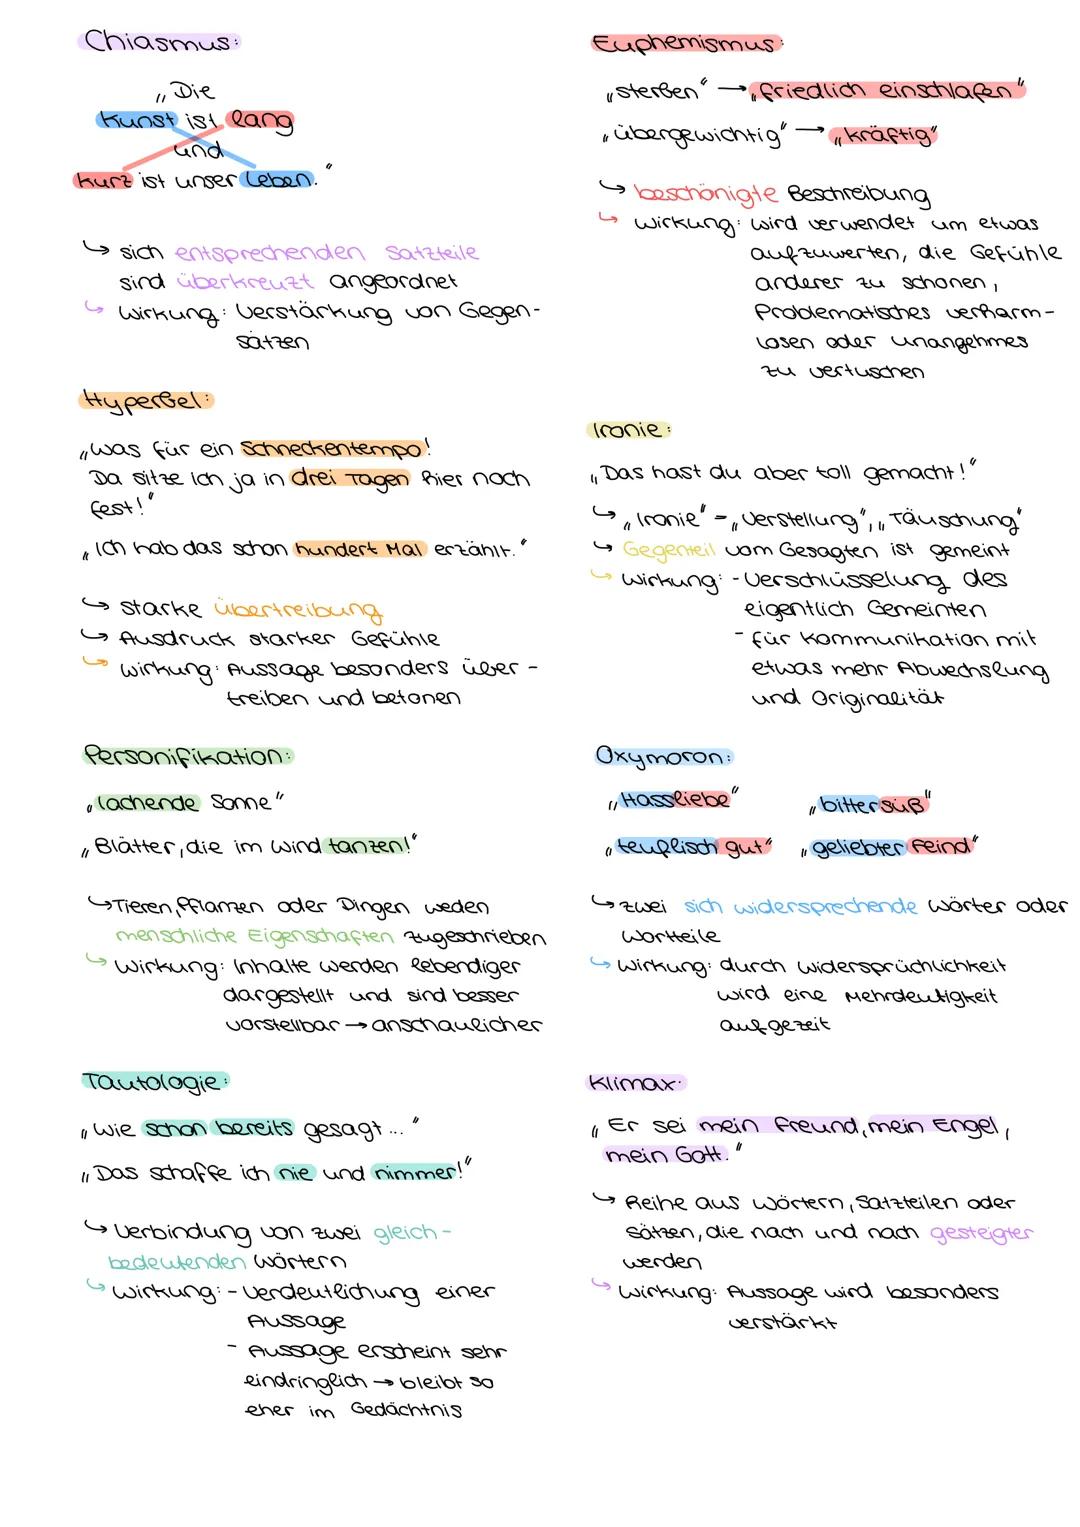 Chiasmus:
„Die
Kunst ist lang
und
kurz ist unser Leben."
↳ sich entsprechenden Satzteile
sind überkreuzt angeordnet
↳ Wirkung: Verstärkung von Gegen-
sätzen
Hyperbel:
„Was für ein Schneckentempo!
Da sitze ich ja in drei Tagen hier noch
fest!"
„Ich hab das schon hundert Mal erzählt."
↳ starke Übertreibung
↳ Ausdruck starker Gefühle
↳ Wirkung: Aussage besonders über-
treiben und betonen
Personifikation:
„lachende Sonne"
„Blätter, die im Wind tanzen!"
↳ Tieren, Pflanzen oder Dingen weden
menschliche Eigenschaften zugeschrieben
↳ Wirkung: Inhalte werden lebendiger
dargestellt und sind besser
vorstellbar → anschaulicher
Tautologie:
„Wie schon bereits gesagt..."
„Das schaffe ich nie und nimmer!"
↳ Verbindung von zwei gleich-
bedeutenden Wörtern
↳ Wirkung: - Verdeutlichung einer
Aussage
- Aussage erscheint sehr
eindringlich → bleibt so
eher im Gedächtnis
Euphemismus:
„sterben" → „friedlich einschlafen"
„übergewichtig" → „kräftig"
↳ beschönigte Beschreibung
↳ Wirkung: wird verwendet um etwas
aufzuwerten, die Gefühle
anderer zu schonen,
Problematisches verharm-
losen oder unangehmes
zu vertuschen
Ironie:
„Das hast du aber toll gemacht!"
↳ „Ironie" = „Verstellung", „Täuschung"
↳ Gegenteil vom Gesagten ist gemeint
↳ Wirkung: - Verschlüsselung des
eigentlich Gemeinten
- für Kommunikation mit
etwas mehr Abwechslung
und Originalität
Oxymoron:
„Hassliebe" „bittersüß"
„teuflisch gut" „geliebter Feind"
↳ zwei sich widersprechende Wörter oder
Wortteile
↳ Wirkung: durch Widersprüchlichkeit
wird eine Mehrdeutigkeit
aufgezeit
Klimax:
„Er sei mein Freund, mein Engel,
mein Gott."
↳ Reihe aus Wörtern, Satzteilen oder
Sätzen, die nach und nach gesteigter
werden
↳ Wirkung: Aussage wird besonders
verstärkt